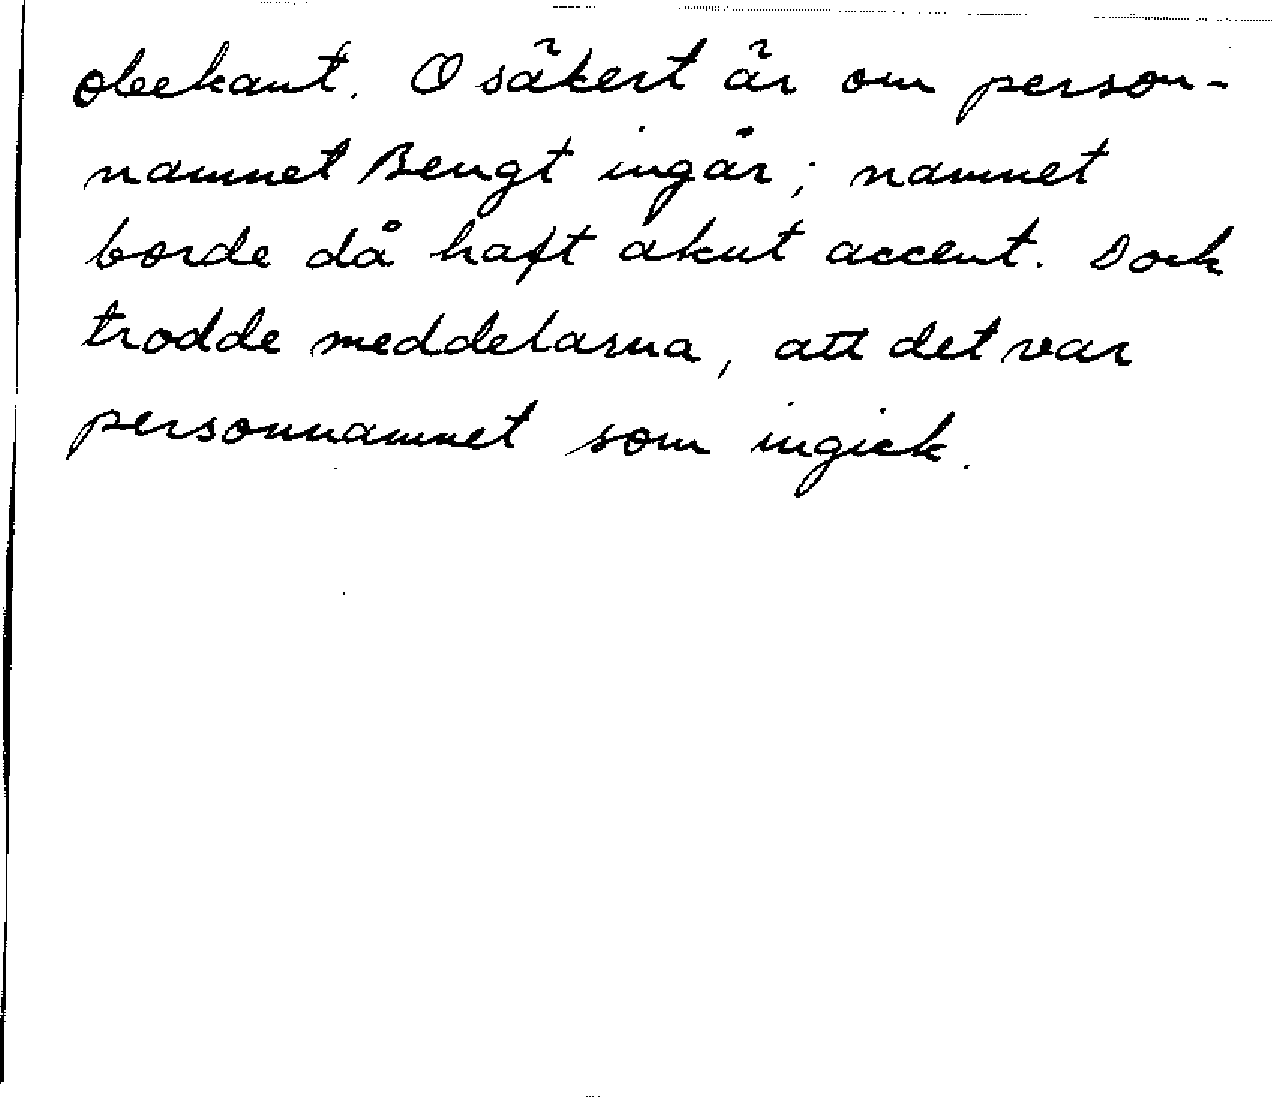 obekant. Osäkert är om person-
namnet Bengt ingår; namnet
borde då haft akut accent. Dock
trodde meddelarna, att det var
personnamnet som ingick.